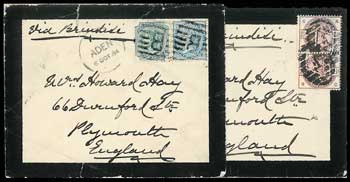 Via Brindisi
ADEN
B
Mrs Howard Hay
66 Durnford Str
Plymouth
England
Via Brindisi
Howard Hay
Durnford Str
Plymouth
England